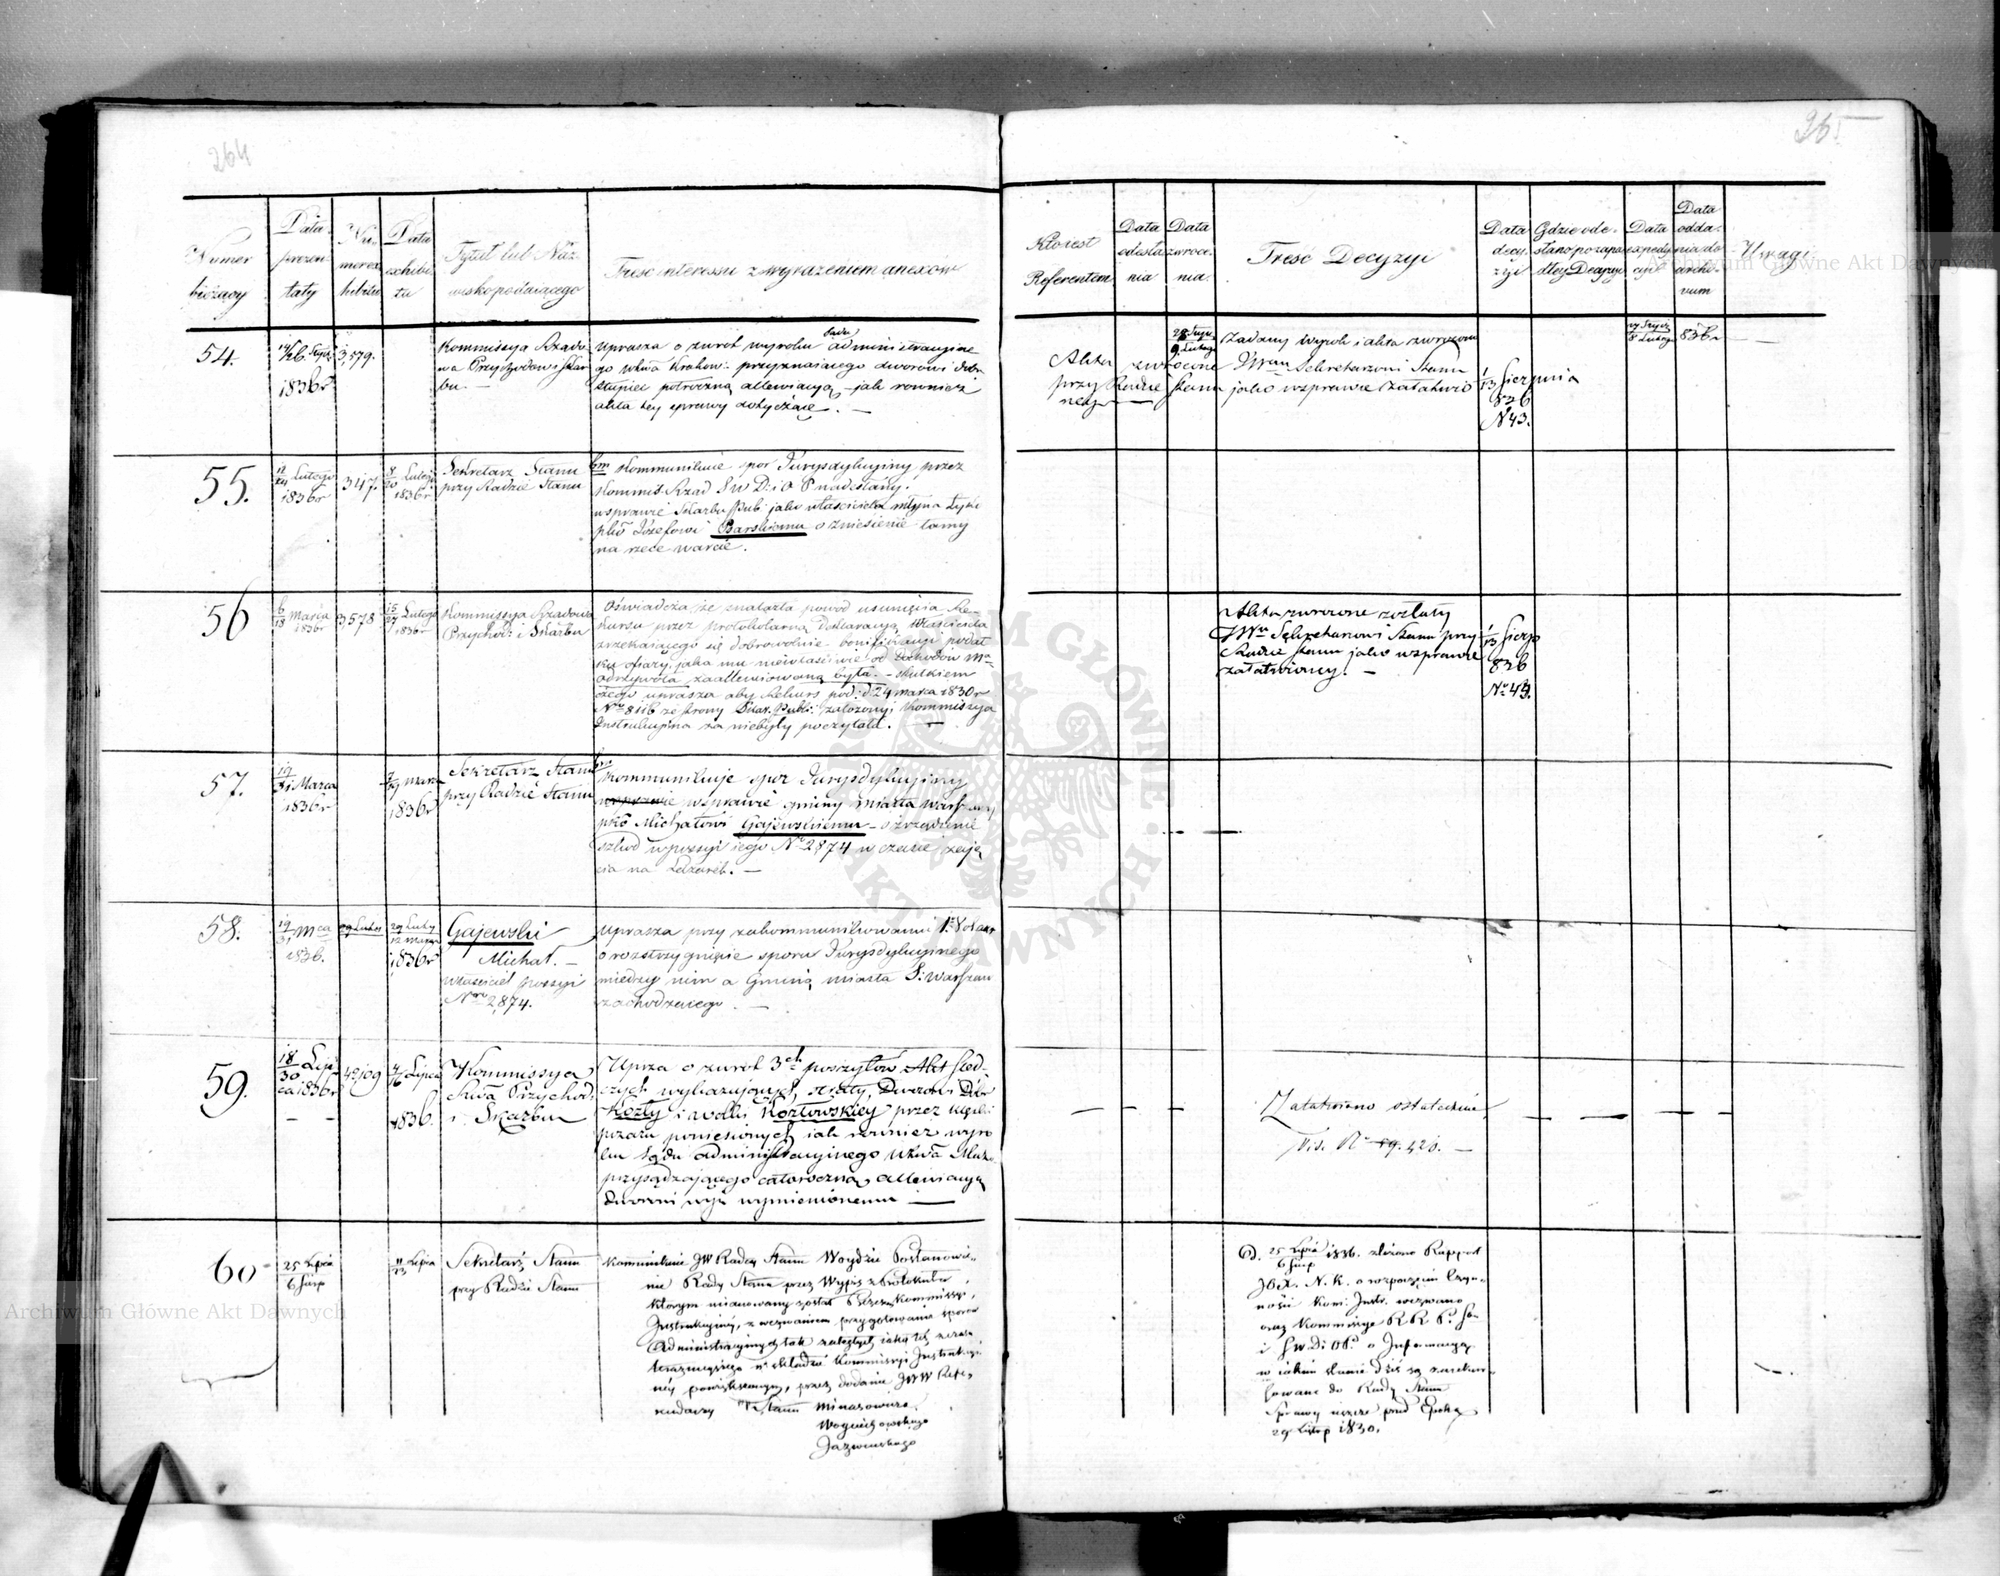 264
Numer bieżący
Data prezentaty
Numer exhibitu
Data exhibitu
Tytuł lub Nazwisko podaiącego
Treść interessu z wyrażeniem anexow
54.
14/26 Stycz
1836r
3,579.
Kommissya Rządowa Przychodow i Skarbu. —
Uprasza o zwrot wyroku Sądu administracyjnego wdztwa Krakow: przyznaiącego dworowi
potroczną allewiacyą — jak rownież
akta tey sprawy dotyczące. —
55.
12/24 Lutego
1836r
347.
8/20 Lutego
1836r
Sekretarz Stanu
przy Radzie Stanu
Kommunikuie spor Jurysdykcyiny przez
Kommis. Rząd S W D: i O P nadesłany.
w sprawie Skarbu Pub: jako właściciela młyna
pko Józefowi Barskiemu o zniesienie tamy
na rzece warcie.
56
6/18 Marca
1836r
3,578
15/27 Lutego
1836r
Kommissya Rządowa
Przychod: i Skarbu
Oświadcza że znalazła powod usunięcia Rekursu przez protokolarną Deklaracyą właściciela
zrzekaiącego się dobrowolnie bonifikacyi podatku ofiary, jaka mu niewłaściwie od dochodow
zaallewiowaną była. — skutkiem
czego uprasza aby Rekurs pod: d. 24 marca 1830r
Nro 8116 ze strony Skar. Publ: założony Kommissya
Instrukcyina za niebyły poczytała. —
57.
19/31 Marca
1836r
7/19 marca
1836r
Sekretarz Stanu
przy Radzie Stanu
Kommunikuje spor Jurysdykcyiny
w sprawie gminy miasta Warszawy
pko Michałowi Gajewskiemu — o zrządzenie
szkod w possyi iego No 2874 w czasie zajęcia na Lazaret. —
58.
19/31 Mca
1836.
29 Luty
12 marca
1836r
Gajewski
Michał. —
właściciel possyi
Nro 2,874.
Uprasza przy zakommunikowaniu
o rozstrzygnięcie sporu Jurysdykcyinego
miedzy nim a Gminą miasta S: Warszaw
zachodzącego. —
59.
18/30 Lipca 1836r
— —
42,109
4/16 Lipca
1836.
Kommissya
Przychod:
i Skarbu
Uprza o zwrot 3ch poszytów Akt śledczych wykazujących straty, Dworowi Dóbr
Kozły i wolki Kozłowskiey przez klęski
pożaru poniesionych iak rownież wyroku Sądu administracyinego
przysądzaiącego całoroczną allewiacyą
Dworowi wyż wymienionemu —
60
25 Lipca
6 Sierp
11/23 Lipca
Sekretarz Stanu
przy Radzie Stanu
Kommunikuie JW Radcy Stanu Woydzie Postanowienie Rady Stanu przez Wypis z Protokułu,
którym mianowany został Prezesem Kommissyi
Instrukcyinej, z wezwaniem przygotowania sporow
Administracyinych tak zaległych iako też
w składzie Kommissyi Instrukcyinéy powiększonym, przez dodanie JWW Referendarzy Stanu Minasowicza,
Woyciechowskiego
Jazwinskiego
265
Kto iest Referentem
Data odesłania
Data zwrocenia.
Treść Decyzyi
Data decyzyi
Gdzie odesłano po zapadłey Decyzyi
Data expedycyi
Data oddania do archivum
Uwagi
28 Stycz
9 Lutego
Akta zwrocone
przy Radzie Stanu
Żądany wyrok i akta zwrocono
JWmu Sekretarzowi Stanu
jako w sprawie załatwio
1/13 Sierpnia
836
N 43.
27 Stycz
8 Lutego
836r
—
Akta zwrocone zostały
JWmu Sekretarzowi Stanu przy
Radzie Stanu jako w sprawie
załatwioney. —
1/13 Sierp
836
No 43.
Załatwiono ostatecznie
Vid. No 426. —
D. 25 Lipca/6 Sierp 1836. złożono Rapport
JOX. N. K. o rozpoczęciu Czynności Kom: Instr. wezwano
oraz Kommissye R R P. i Sk.
i S w. D: i OP. o Informacyą
w iakim stanie dziś są zarekurowane do Rady Stanu
Sprawy ieszcze przed Epoką
29 Listop 1830.
Archiwum Główne Akt Dawnych
Archiwum Główne Akt Dawnych
ARCHIWUM GŁÓWNE AKT DAWNYCH